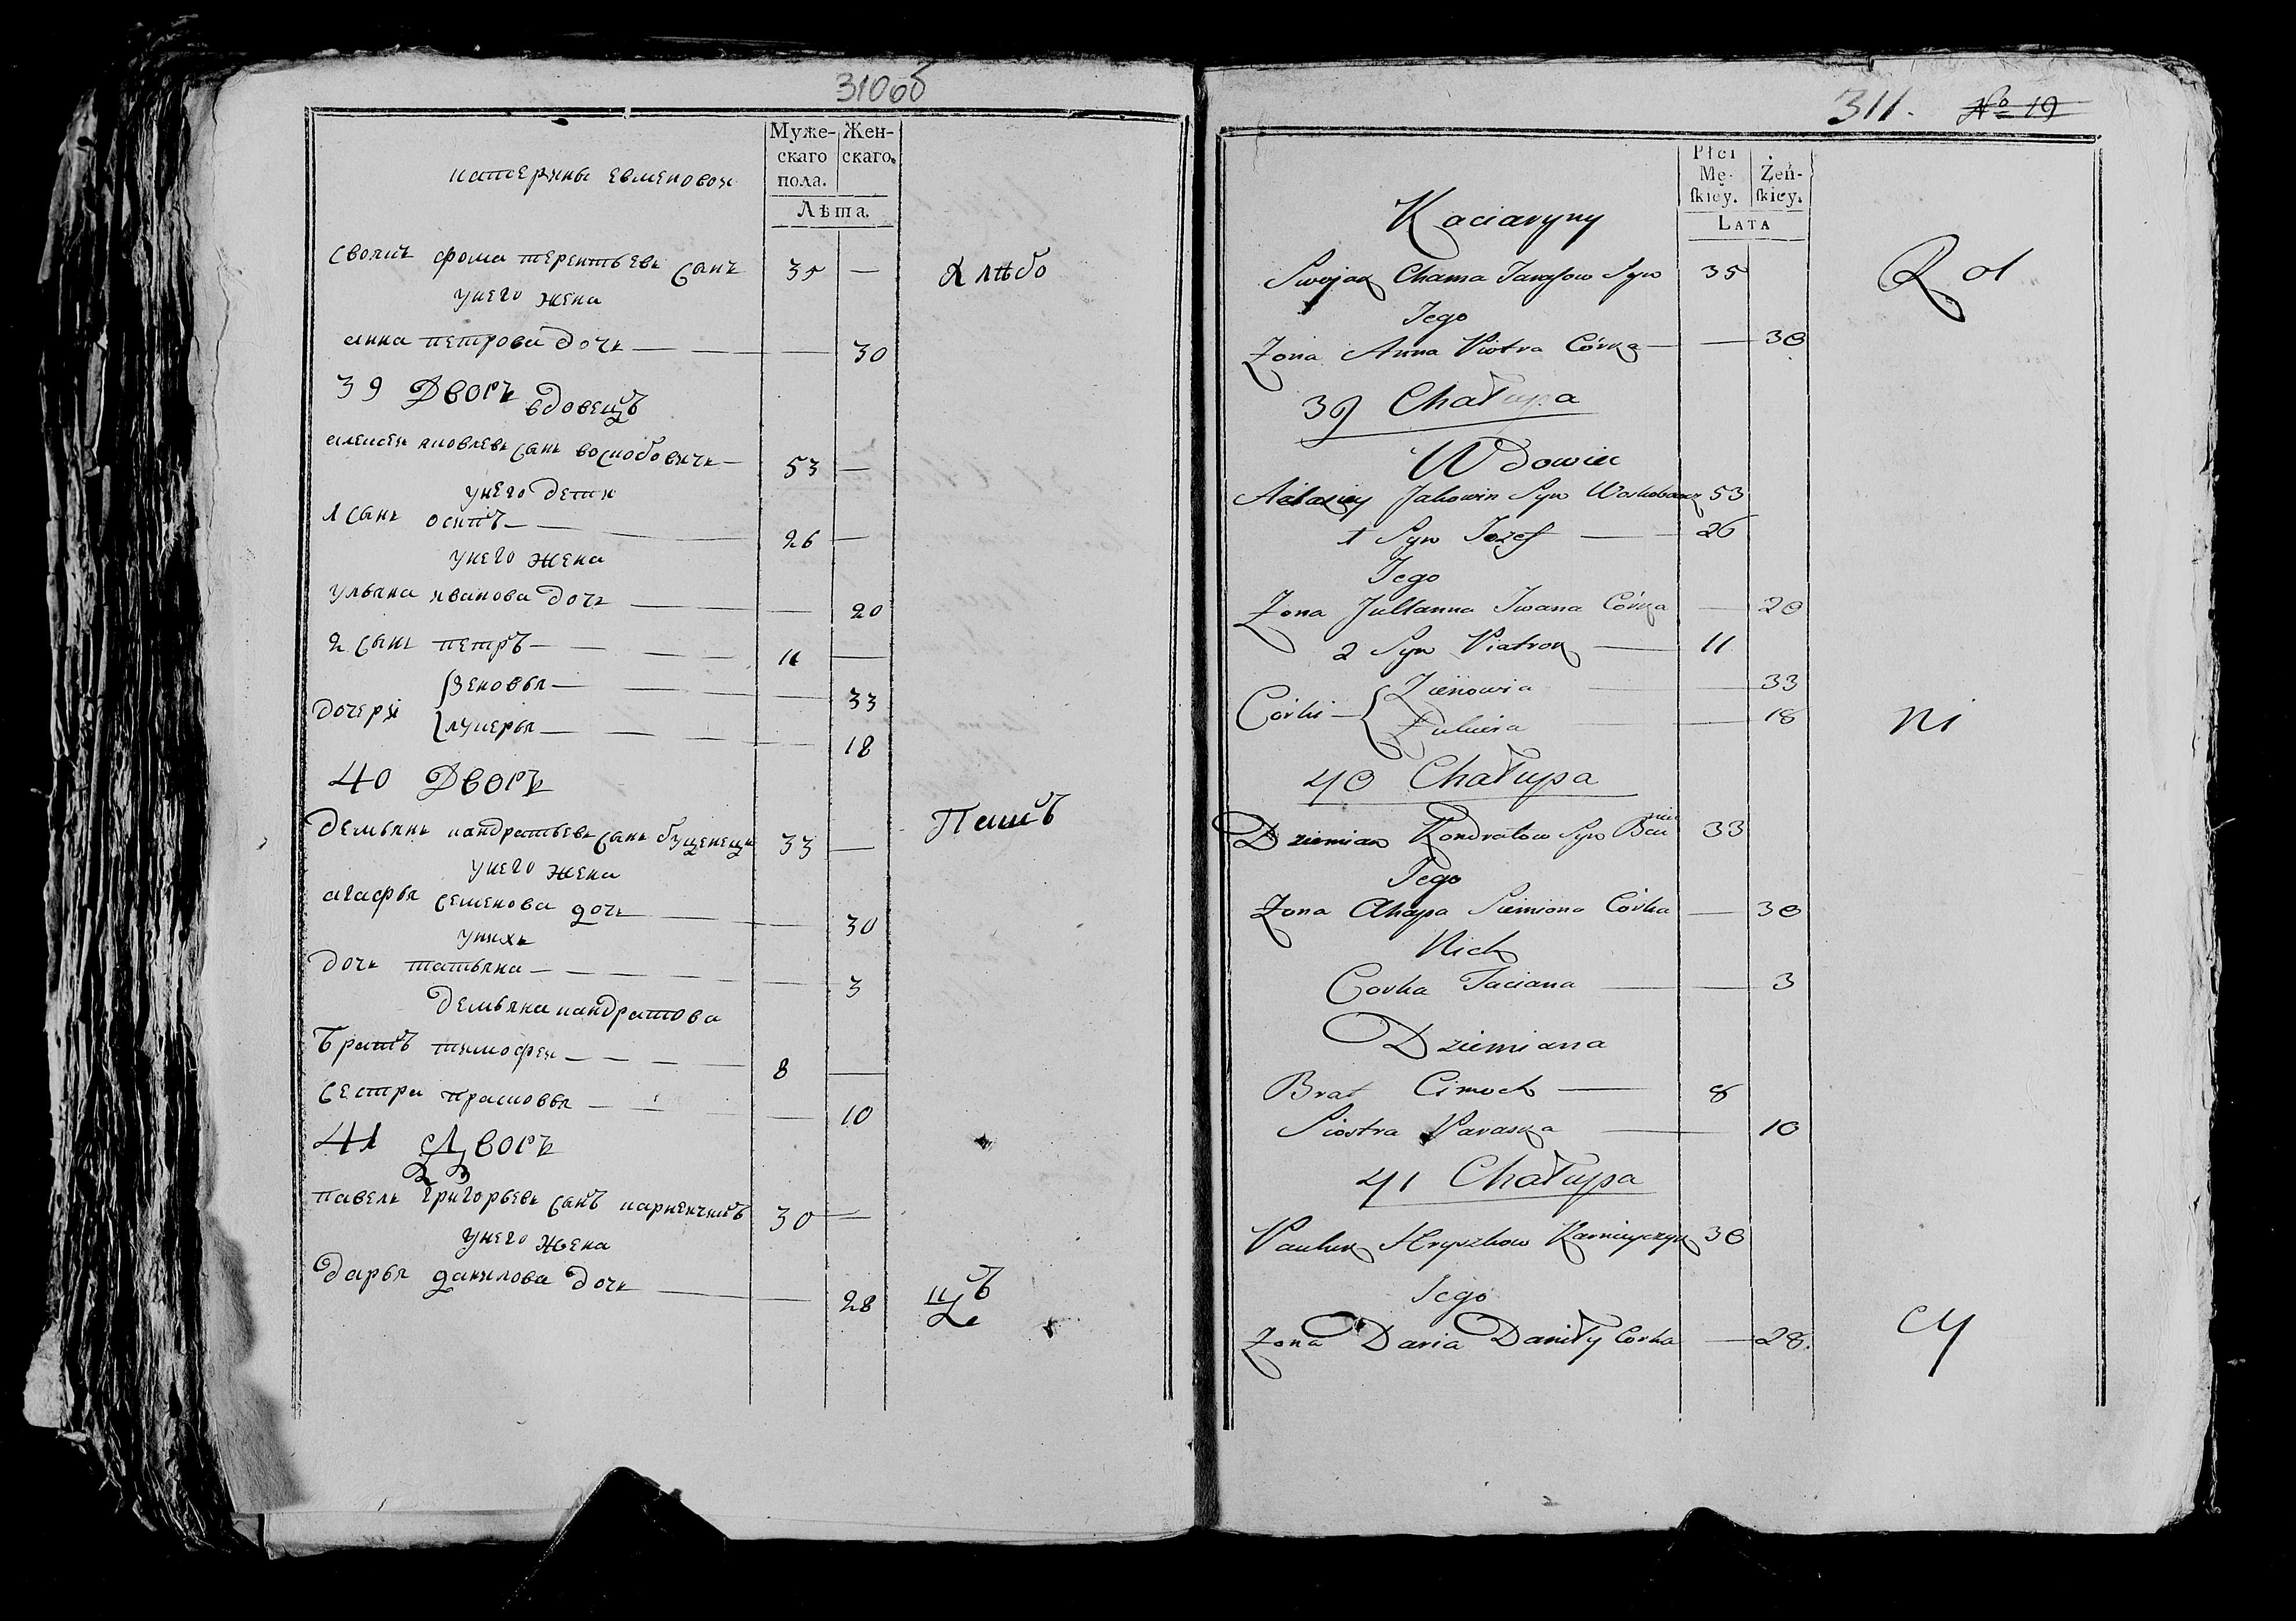 310об
Муже- Жен-
скаго скаго.
пола.
Лѣта.
катерины евменовои
своякъ фома терентьевъ сынъ 35 —
унего жена
анна петрова дочь — 30
39 Дворъ
вдовецъ
алексеи яковлевъ сынъ воскобовичь 53 —
унего дети
1 сынъ осипъ 26 —
унего жена
ульяна иванова дочь — 20
2 сынъ петръ 11 —
дочери зеновья — 33
лукерья — 18
40 Дворъ
демьянъ кандратьевъ сынъ 33 —
унего жена
агафья семенова дочь — 30
унихъ
дочь татьяна — 3
демьяна кандратова
братъ тимофеи 8 —
сестра прасковья — 10
41 Дворъ
павелъ григорьевъ сынъ 30 —
унего жена
дарья данилова дочь — 28
хлѣбо
Пашъ
цъ
311. № 19
Płci
Mę- Żeń-
skiey. skiey.
LATA
Kaciaryny
Swojak Chama Tarasow Syn 35
Jego
Zona Anna Piotra Córka — 30
39 Chałupa
Wdowiec
Jakowin Syn 53
1 Syn Jozef — 26
Jego
Zona Julianna Iwana Córka — 20
2 Syn Piatrok — 11
Córki Zienowia — 33
Łukiera — 18
40 Chałupa
Dziemian Kondratow Syn 33
Jego
Zona Ahapa Siemiona Córka — 30
Nich
Corka Taciana — 3
Dziemiana
Brat Cimoch — 8
Siostra Paraska — 10
41 Chałupa
Pauluk Hryszkow 30
Jego
Zona Daria Daniły Corka — 28.
Rol
ni
cy